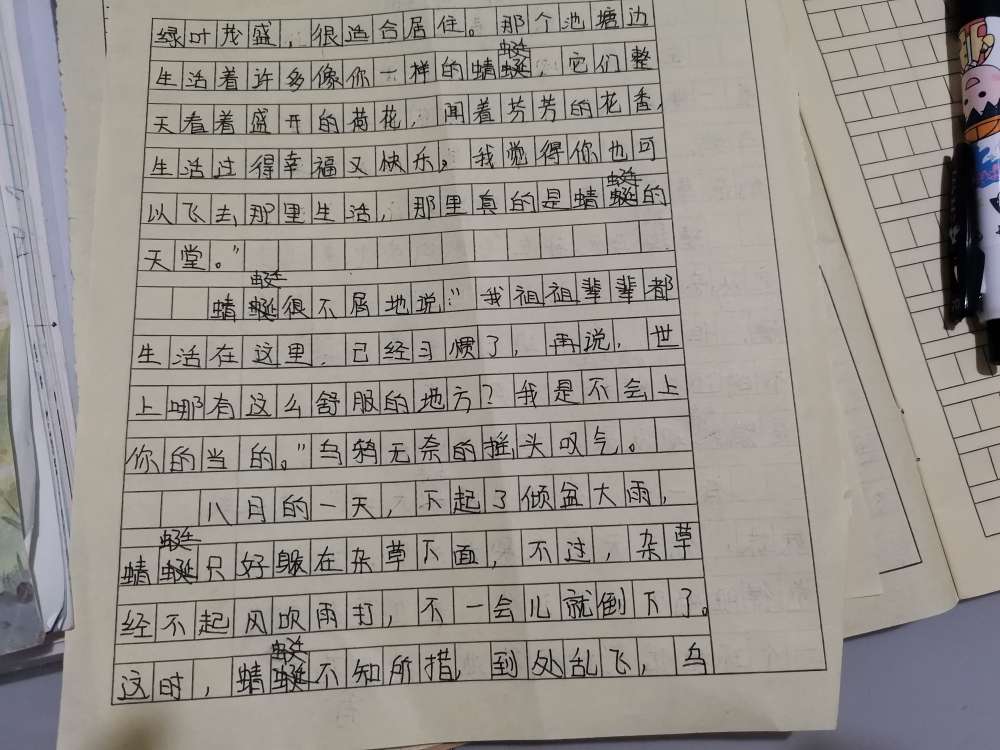 绿叶茂盛，很适合居住。那个池塘边
生活着许多像你一样的蜻蜓，它们整
天看着盛开的荷花，闻着芬芳的花香，
生活过得幸福又快乐，我觉得你也可
以飞去那里生活，那里真的是蜻蜓的
天堂。”
蜻蜓很不屑地说：“我祖祖辈辈都
生活在这里，已经习惯了，再说，世
上哪有这么舒服的地方？我是不会上
你的当的。”乌鸦无奈的摇头叹气。
八月的一天，下起了倾盆大雨，
蜻蜓只好躲在杂草下面，不过，杂草
经不起风吹雨打，不一会儿就倒下了。
这时，蜻蜓不知所措，到处乱飞，乌